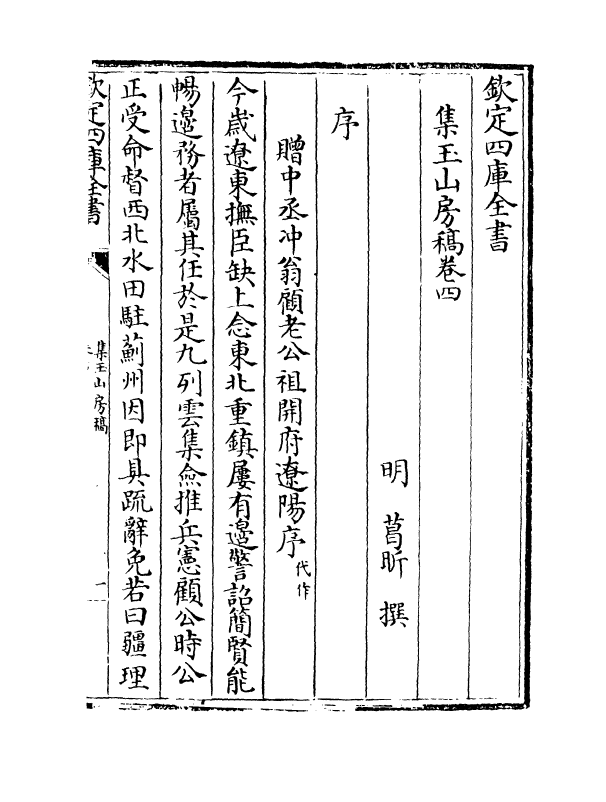 欽定四庫全書
集玉山房稿卷四
明 葛昕 撰
序
贈中丞冲翁顧老公祖開府遼陽序代作
今歲遼東撫臣缺上念東北重鎮屢有邊警詔簡賢能
暢邊務者屬其任於是九列雲集僉推兵憲顧公時公
正受命督西北水田駐薊州因即具疏辭免若曰疆理
欽定四庫全書
集玉山房稿
一